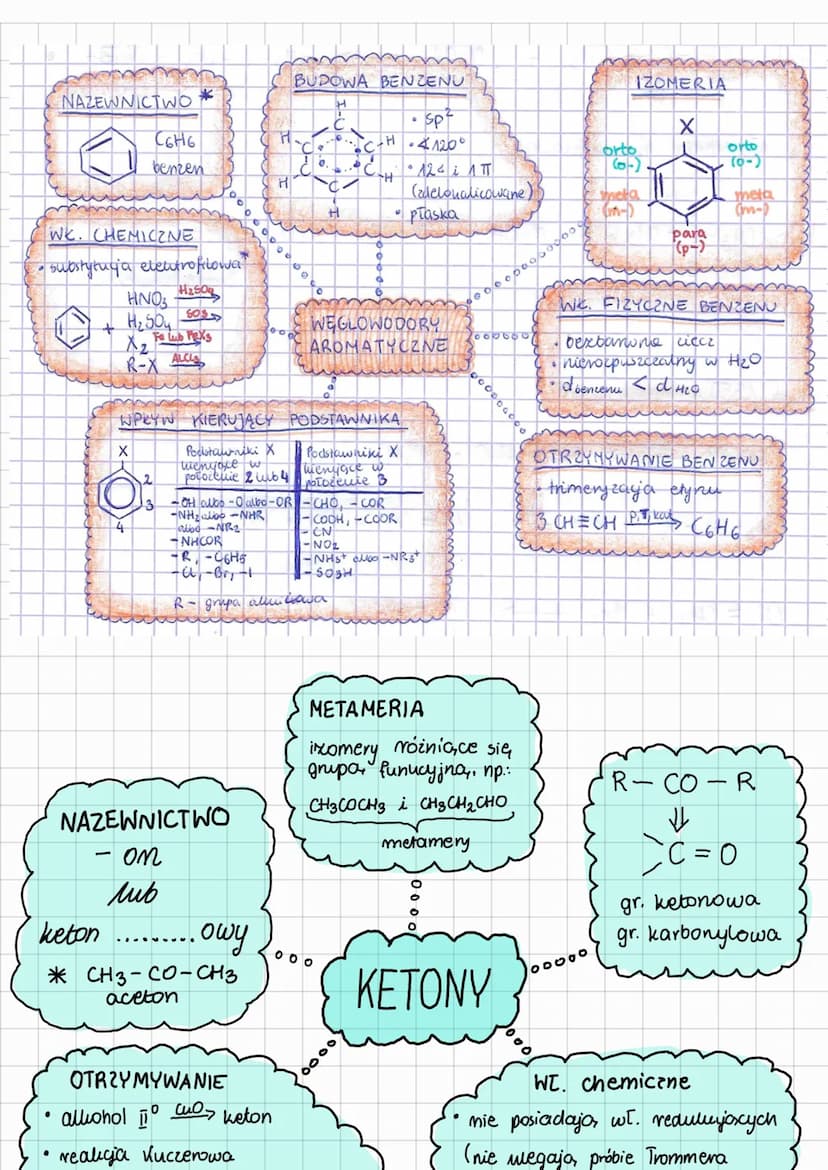 NAZEWNICTWO *
C6H6
benzen
BUDOWA BENZENU
H
C
H C C H
H C C H
C
H
• sp²
• ∢ 120°
• 12 σ i 1 π
(zdelokalizowane)
• płaska
IZOMERIA
X
orto (o-)
orto (o-)
meta (m-)
meta (m-)
para (p-)
WŁ. CHEMICZNE
• substytucja elektrofilowa*
+
HNO3 H2SO4
H2SO4 SO3
X2 Fe lub FeX3
R-X AlCl3
WĘGLOWODORY
AROMATYCZNE
WŁ. FIZYCZNE BENZENU
• bezbarwna ciecz
• nierozpuszczalny w H2O
• d benzenu < d H2O
WPŁYW KIERUJĄCY PODSTAWNIKA
X
2
3
4
Podstawniki X
kierujące w
położenie 2 lub 4
-OH albo -O albo -OR
-NH2 albo -NHR
albo -NR2
-NHCOR
-R, -C6H5
-Cl, -Br, -I
Podstawniki X
kierujące w
położenie 3
-CHO, -COR
-COOH, -COOR
-CN
-NO2
-NH3+ albo -NR3+
-SO3H
R - grupa alkilowa
OTRZYMYWANIE BENZENU
• trimeryzacja etynu
3 CH≡CH p,T,kat. C6H6
METAMERIA
izomery różniące się
grupą funkcyjną, np.:
CH3COCH3 i CH3CH2CHO
metamery
NAZEWNICTWO
- on
lub
keton .........owy
* CH3-CO-CH3
aceton
R - CO - R
⇓
C = O
gr. ketonowa
gr. karbonylowa
KETONY
OTRZYMYWANIE
• alkohol II° CuO keton
• reakcja Kuczerowa
WŁ. chemiczne
• nie posiadają wł. redukujących
(nie ulegają próbie Trommera